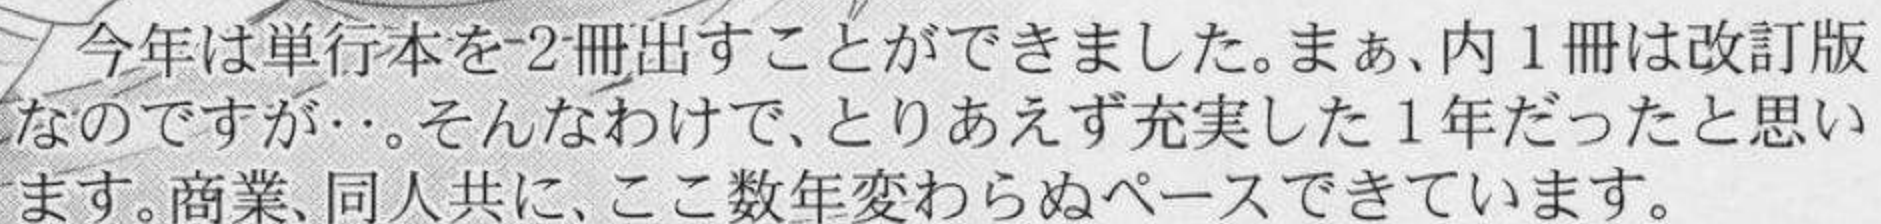 今年は単行本を2冊出すことができました。まぁ、内1冊は改訂版
なのですが‥。そんなわけで、とりあえず充実した1年だったと思い
ます。商業、同人共に、ここ数年変わらぬペースできています。